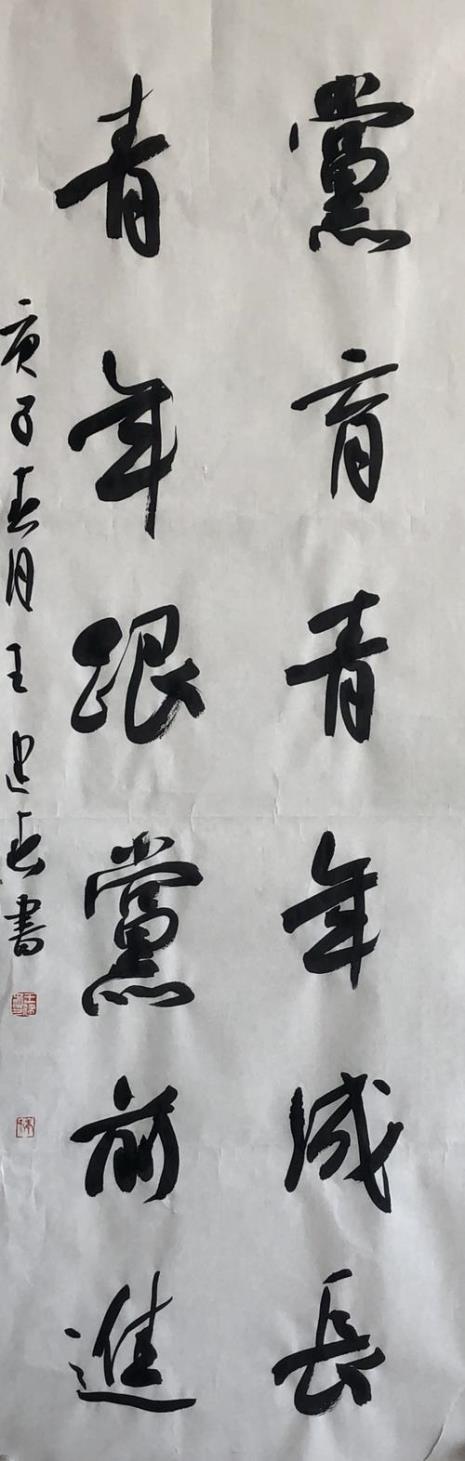 黨育青年成長
青年跟黨前進
庚子春月王建春書